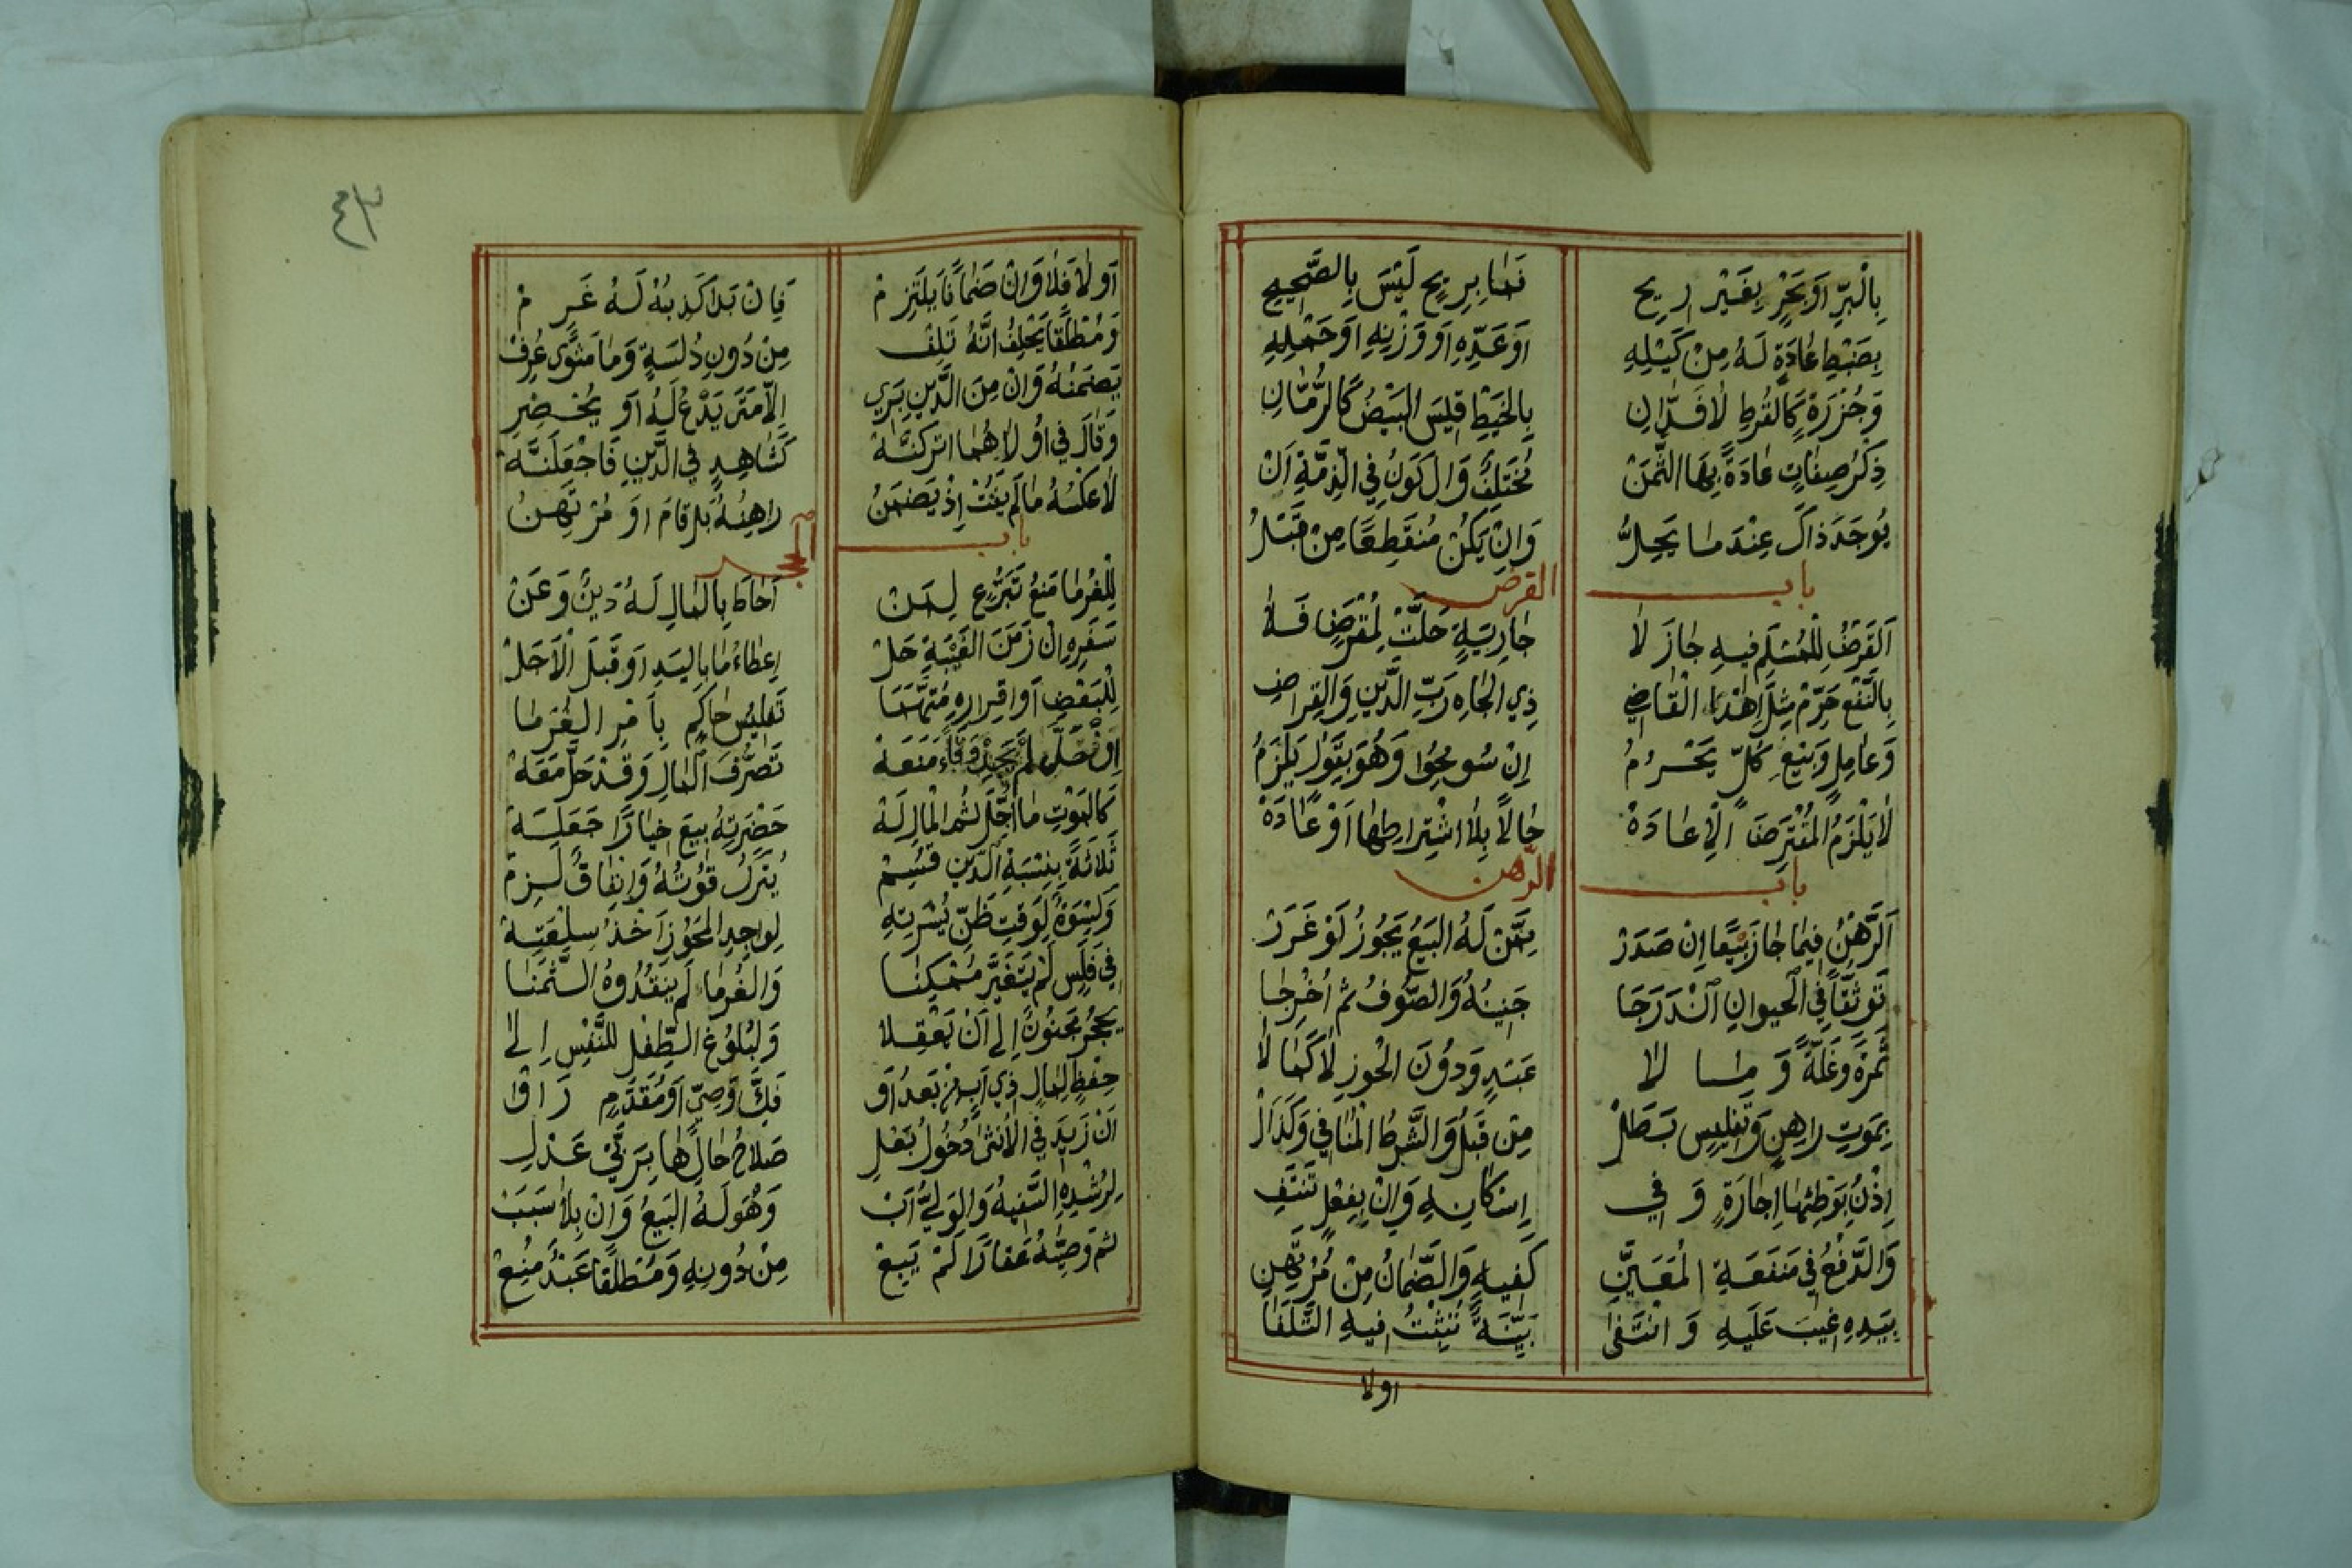 بِالْبَرِّ اَوْ بَحْرٍ بِغَيْرِ رِيحِ فَمَا بِرِيحٍ لَيْسَ بِالصَّحِيحِ
بِضَبْطِ عَادَةٍ لَهُ مِنْ كَيْلِهِ اَوْ عَدِّهِ اَوْ وَزْنِهِ اَوْ حَمْلِهِ
وَجُزْرَةٍ كَالقُرطِ لَا فَدَّانِ بِالخَيْطِ قِيسَ البَيْضُ كَالرُّمَّانِ
ذِكْرُ صِفَاتٍ عَادَةً بِهَا الثَّمَنْ يُخْتَلِفُ وَالكَوْنُ فِي الذِّمَّةِ اَنْ
يُوجَدَ ذَاكَ عِنْدَمَا يَحِلُّ وَاِنْ يَكُنْ مُنقَطِعًا مِنْ قَبْلُ
باب القرض
اَلقَرضُ لِلْمُسْلَمِ فِيهِ جَازَ لَا جَارِيَةٍ حَلَّتْ لِمُقْرَضٍ فَلَا
بِالنَّفْعِ حَرِّمْ مِثْلَ اِهْدَا القَاضِي ذِي الجَاهِ رَبِّ الدَّينِ وَالقِرَاضِ
وَعَامِلٍ وَبَيْعِ كُلٍّ يَحْرُمُ اِنْ سُومِحُوا وَهُوَ بِقَوْلٍ يَلْزَمُ
لَا يَلْزَمُ المُقْتَرِضَ الْاِعَادَهْ حَالًا بِلَا اشْتِرَاطِهَا اَوْ عَادَهْ
باب الرهن
اَلرَّهْنُ فِيمَا جَازَ بَيْعًا اِنْ صَدَرْ مِمَّنْ لَهُ البَيْعُ يَجُوزُ لَوْ غَرَرْ
تَوَثُّقًا فِي الحَيوانِ اَنْدَرَجَا جَنِينُهُ وَالصُّوفُ ثم اُخْرِجَا
ثَمْرَةٌ وَغَلَّةٌ وَمَا لَا عَبْدٍ وَدُونَ الحَوزِ لَا كَمَا لَا
بِمَوتِ رَاهِنٍ وَتَفْلِيسٍ بَطَلْ مِن قَبْلُ وَالشَّرطُ المُنَافِي وَكَذَالْ
اِذْنُ بِوَطْئِهَا اِجَارَةٍ وَفِي اِسْكَانِهِ وَاِنْ بِفِعْلٍ تَنْتَفِ
وَالدَّفْعُ فِي مَنْفَعَةِ المُعَيَّنِ كَفِيهِ وَالضَّمَانُ مِنْ مُرْتَهِنِ
بِيَدِهِ غِيبَ عَلَيهِ وَانْتَفَى بَيِّنَةٌ تُثْبِتُ فِيهِ التَّلَفَا
اولا
٤٣
اَو لَا فَلَا وَاِنْ ضَمَانًا يَلْتَزِمْ فَاِنْ بَدَا كَذِبُهُ لَهُ غَرِمْ
وَمُطْلَقًا يَحْلِفُ اَنَّهُ تَلِفْ مِنْ دُونِ دُلْسَةٍ وَمَا مَثْوًى عُرِفْ
يَضْمَنُهُ وَاِنْ مِنَ الدَّينِ بَرِي اِلَّا مَتَى يَدْعُ لَهُ اَو يُحْضِرِ
وَقَالَ فِي اُولَاهُمَا اتركنَّهْ كَشَاهِدٍ فِي الدَّينِ فَاجْعَلَنَّهْ
لَا عَكْسُهُ مَا لَم يَفُتْ اِذْ يَضْمَنُ رَاهِنُهُ بَلْ قَامَ اَوْ مُرْتَهِنُ
باب الحجر
لِلْغُرَمَا مَنْعُ تَبَرُّعٍ لِمَنْ اَحَاطَ بِالمَالِ لَهُ دَينٌ وَعَنْ
سَفَرِهِ اِنْ زَمَنَ الغَيْبَةِ حَلْ اِعطَاءُ مَا بِاليَدِ اَو قَبْلَ الْاَجَلْ
لِلْبَعْضِ اَو اِقرَارِهِ مُتَّهَمَا تَفْلِيسُ حَاكِمٍ بِاَمْرِ الغُرَمَا
اِنْ حَلَّ لَمْ يَجِدْ وَفَاءً مَنَعَهْ تَصَرُّفَ المَالِ وَقَدْ حَلَّ مَعَهْ
كَالمَوْتِ مَا اُجِّلَ ثم المَالِ لَهْ حَضْرَتِهُ بِيعَ خِيَارًا جَعَلَهْ
ثَلَاثَةً بِنِسْبَةِ الدَّينِ قُسِمْ يُتْرَكُ قُوتُهُ وَاِنفَاقٌ لَزِمْ
وَكِسْوَةٌ لِوَقتِ ظَنِّ يُسْرَتِهْ لِوَاجِدِ المَحُوزِ اَخْذُ سِلْعَتِهْ
فِي فَلَسٍ لَمْ يَتَغَيَّر مُمْكِنَا وَالغُرَمَا لَم يَنقُدُوهُ الثَّمَنَا
يُحْجَرُ مَجنُونٌ اِلى اَنْ يَعْقِلا وَلِبُلُوغِ الطِّفْلِ للنَّفْسِ اِلَى
حِفْظٍ لِمَالِ ذِي اَبٍ مِنْ بَعْدُ اَو فَكِّ وَصِيٍّ اَو مُقَدَّمٍ رَاَوْا
اَنْ زِيدَ فِي الاُنثَى دُخُولُ بَعْلِ صَلَاحُ حَالِهَا بِمَرئَيْ عَدْلِ
لِرُشْدِهِ السَّفِيهُ وَالوَلِيُّ اَبْ وَهُوَ لَهُ البَيعُ وَاِنْ بِلَا سَبَبْ
ثم وَصِيُّهُ عَقَارًا لَمْ يَبِعْ مِنْ دُونِهِ وَمُطْلَقًا عَبْدٌ مُنِعْ